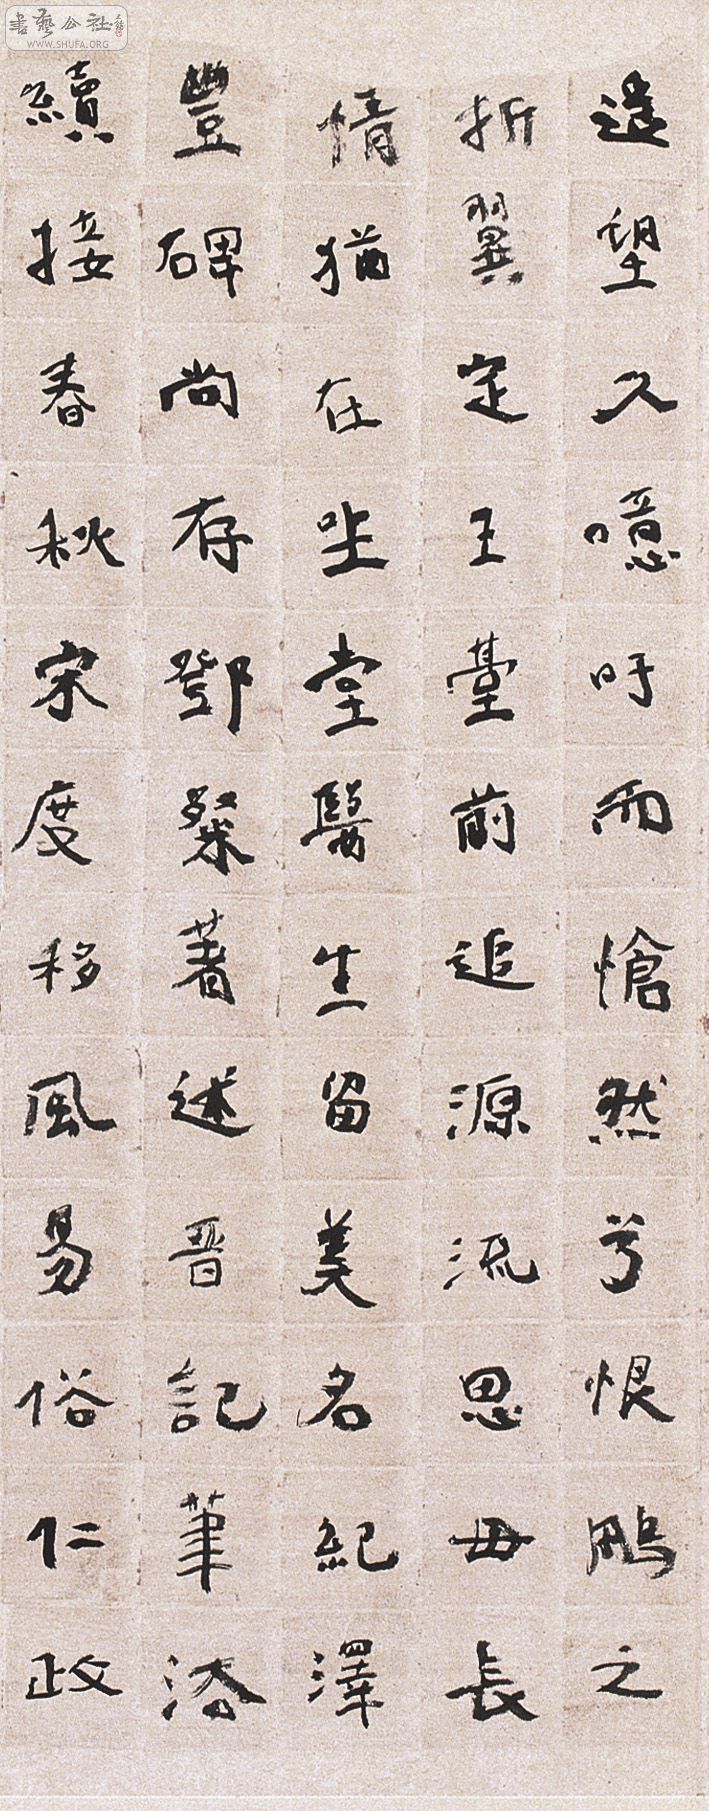 書藝公社
WWW.SHUFA.ORG
遠望久噫吁而愴然兮恨鵬之
折翼定王臺前追源流思母長
情猶在坐堂醫生留美名紀澤
豐碑尚存鄧粲著述晋記筆添
續接春秋宋度移風易俗仁政